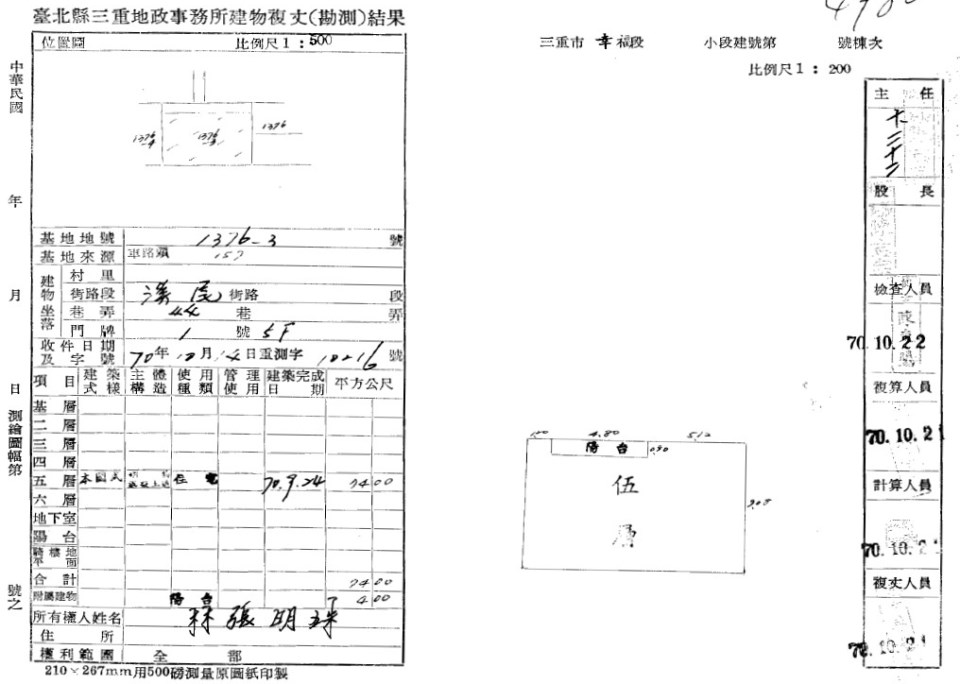 臺北縣三重地政事務所建物複丈(勘測)結果
位置圖 比例尺1:500
三重市 幸福段 小段建號第 號棟次
比例尺1:200
中華民國 年 月 日 測繪圖幅第 號之
1376
1376
基地地號 1376-3 號
基地來源 車路頭 157
建物坐落 村里
街路段 溪尾 街路 段
巷弄 44 巷 弄
門牌 1 號 5F
收件日期及字號 70年10月14日重測字 號
項目 建築式樣 主體構造 使用種類 管理使用 建築完成日期 平方公尺
基層
二層
三層
四層
五層 本國式 住宅 70.9.24 74.00
六層
地下室
陽台
騎樓地平面
合計 74.00
附屬建物 陽台 4.00
所有權人姓名 林張明珠
住所
權利範圍 全部
210×267mm用500磅測量原圖紙印製
4.80 5.12
陽台 0.90
伍層
9.08
主任
股長
檢查人員
70.10.22
複算人員
70.10.21
計算人員
70.10.21
複丈人員
70.10.21